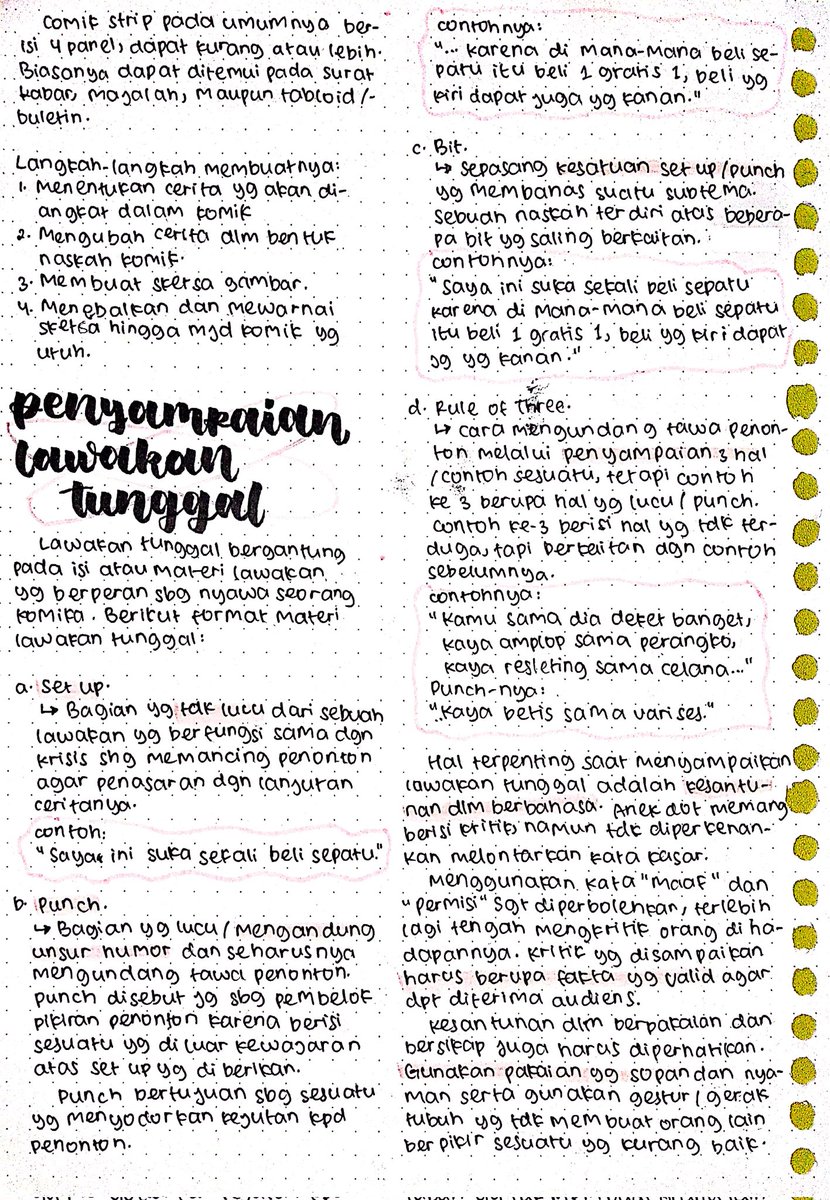 Comik strip pada umumnya ber-
isi 4 panel, dapat kurang atau lebih.
Biasanya dapat ditemui pada surat
kabar, majalah, maupun tabloid/-
buletin.
Langkah-langkah membuatnya:
1. Menentukan cerita yg akan di-
angkat dalam komik
2. Mengubah cerita dlm bentuk
naskah komik.
3. Membuat sketsa gambar.
4. Menebalkan dan mewarnai
sketsa hingga mjd komik yg
utuh.
penyampaian
lawakan
tunggal
Lawakan tunggal bergantung
pada isi atau materi lawakan
yg berperan sbg nyawa seorang
komika. Berikut format materi
lawakan tunggal:
a. Set up.
↳ Bagian yg tdk lucu dari sebuah
lawakan yg berfungsi sama dgn
krisis shg memancing penonton
agar penasaran dgn lanjutan
ceritanya.
contoh:
"Saya ini suka sekali beli sepatu."
b. Punch.
↳ Bagian yg lucu/mengandung
unsur humor dan seharusnya
mengundang tawa penonton.
punch disebut jg sbg pembelok
pikiran penonton karena berisi
sesuatu yg di luar kewajaran
atas set up yg diberikan.
Punch bertujuan sbg sesuatu
yg menyodorkan kejutan kpd
penonton.
contohnya:
"... karena di mana-mana beli se-
patu itu beli 1 gratis 1, beli yg
kiri dapat juga yg kanan."
c. Bit.
↳ sepasang kesatuan set up/punch
yg membahas suatu subtema.
Sebuah naskah terdiri atas bebera-
pa bit yg saling berkaitan.
contohnya:
"Saya ini suka sekali beli sepatu
karena di mana-mana beli sepatu
itu beli 1 gratis 1, beli yg kiri dapat
jg yg kanan."
d. Rule of Three.
↳ cara mengundang tawa penon-
ton melalui penyampaian 3 hal
/contoh sesuatu, terapi contoh
ke 3 berupa hal yg lucu/punch.
contoh ke-3 berisi hal yg tdk ter-
duga, tapi berkeitan dgn contoh
sebelumnya.
contohnya:
"Kamu sama dia deket banget,
kaya amplop sama perangko,
kaya resleting sama celana..."
Punch-nya:
"Kaya betis sama varises."
Hal terpenting saat menyampaikan
lawakan tunggal adalah kesantu-
nan dlm berbahasa. Anekdot memang
berisi kritik, namun tdk diperkenan-
kan melontarkan kata kasar.
Menggunakan kata "maaf" dan
"permisi" sgt diperbolehkan, terlebih
lagi tengah mengkritik orang di ha-
dapannya. Kritik yg disampaikan
harus berupa fakta yg valid agar
dpt diterima audiens.
Kesantunan dlm berpakaian dan
bersikap juga harus diperhatikan.
Gunakan pakaian yg sopan dan nya-
man serta gunakan gestur/gerak
tubuh yg tdk membuat orang lain
berpikir sesuatu yg kurang baik.